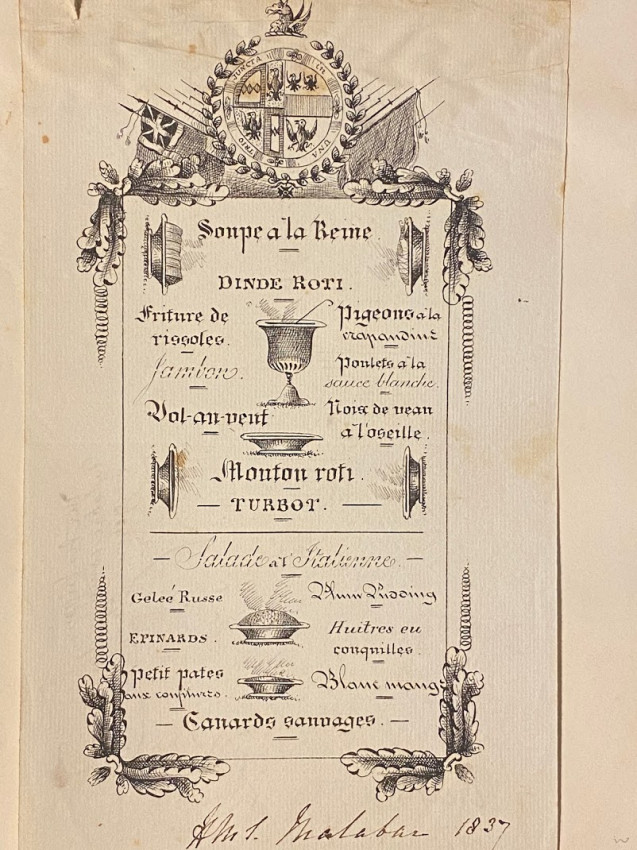 JUNCTA IN UNO TRIA
Soupe a la Reine.
DINDE ROTI.
Friture de
rissoles.
Pigeons a la
crapaudine
Jambon.
Poulets a la
sauce blanche.
Vol-au-vent
Noix de veau
a l'oseille.
Mouton roti.
TURBOT.
Salade a l'Italienne.
Geleé Russe
Plum Pudding
EPINARDS.
Huitres en
conquilles.
Petit pates
aux confitures.
Blanc mange
Canards sauvages.
H.M.S. Malabar 1837